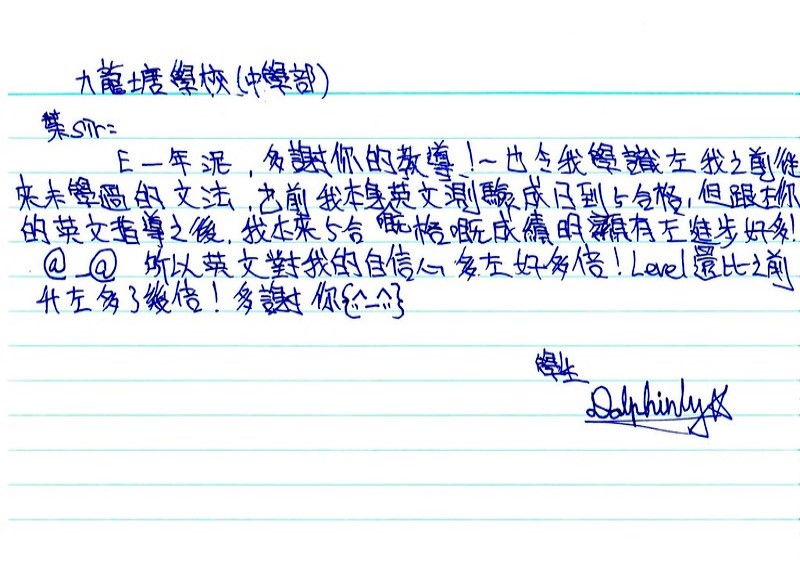 九龍塘學校(中學部)
葉sir=
E一年泥，多謝你的教導！~也令我學識左我之前從
來未學過的文法，之前我本身英文測驗成日到5合格，但跟左你
的英文指導之後，我本來5合嘅格嘅成績明顯有左進步好多！
@_@ 所以英文對我的自信心多左好多倍！Level還比之前
升左多了幾倍！多謝你{^_^}
學生
Dolphinly☆